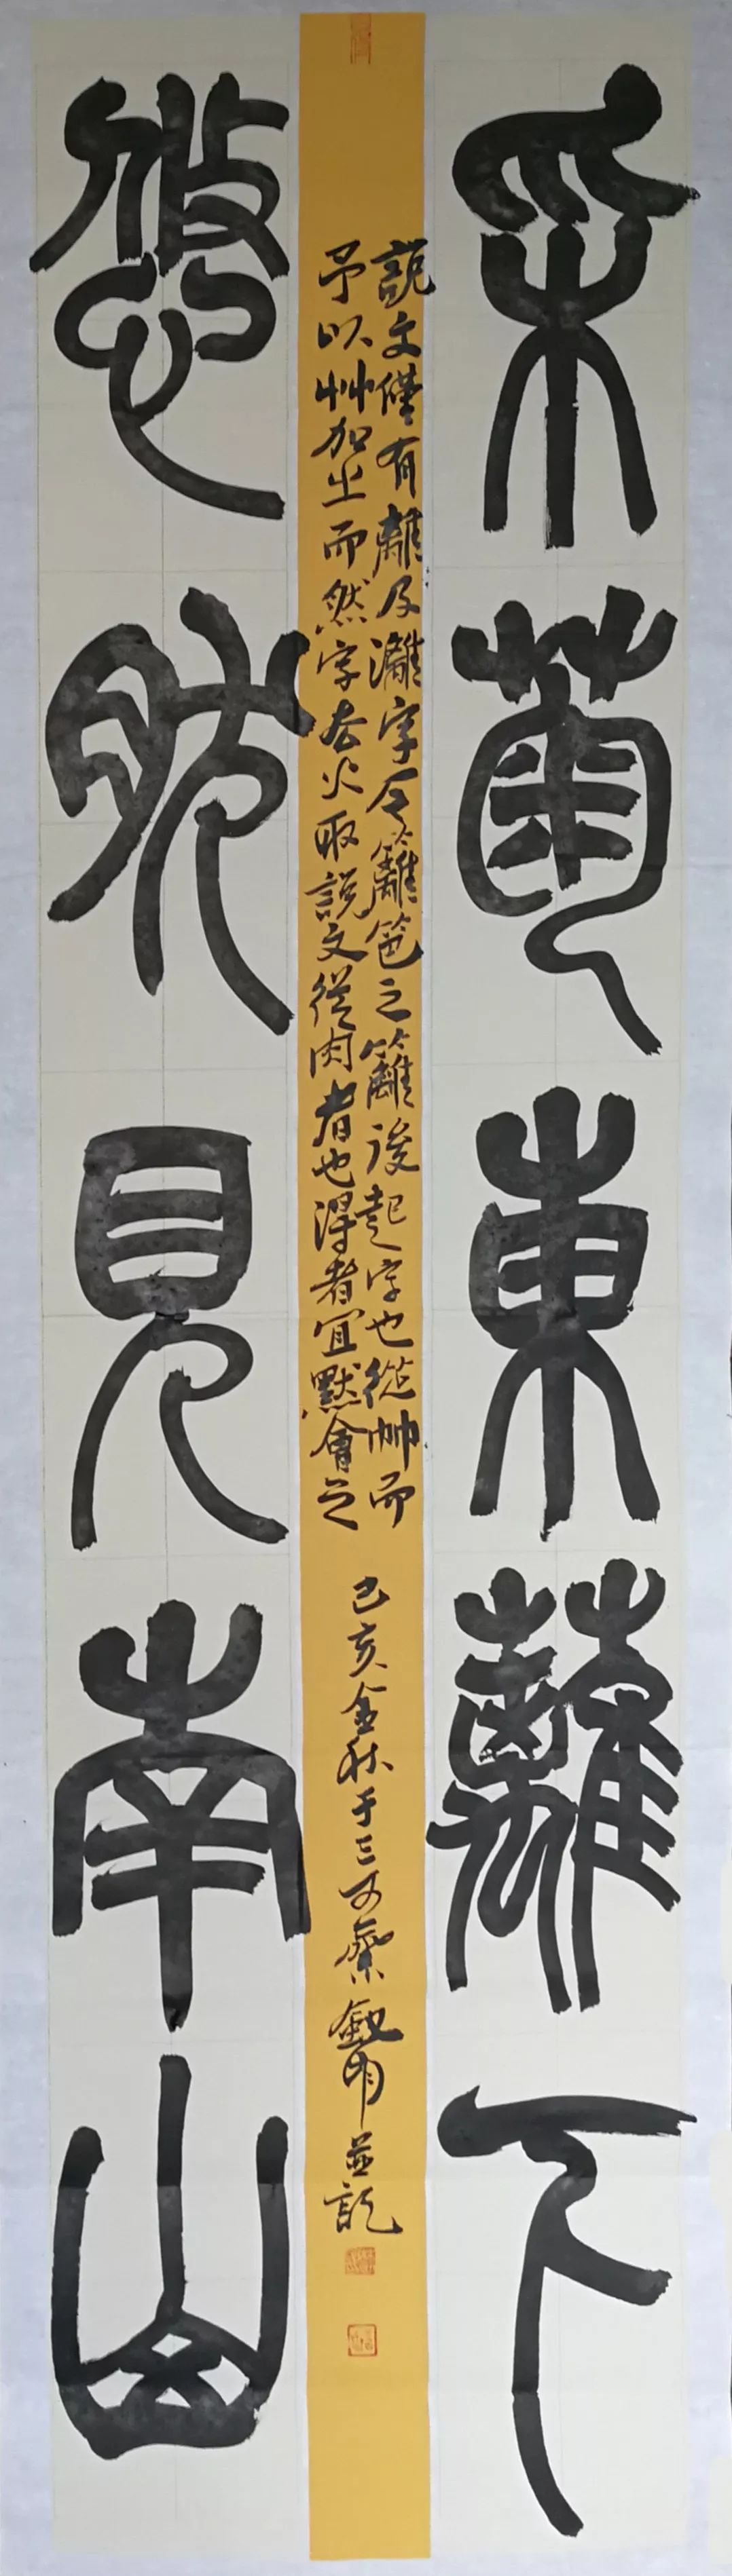 采菊東蘺下
説文僅有離及灕字今籬笆之籬後起字也從艸而
予以艸加之而然字去火取説文從肉者也淂者宜默會之
己亥金秋于三
並記
悠肰見南山